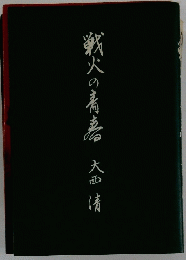 戦火の青春
大西清